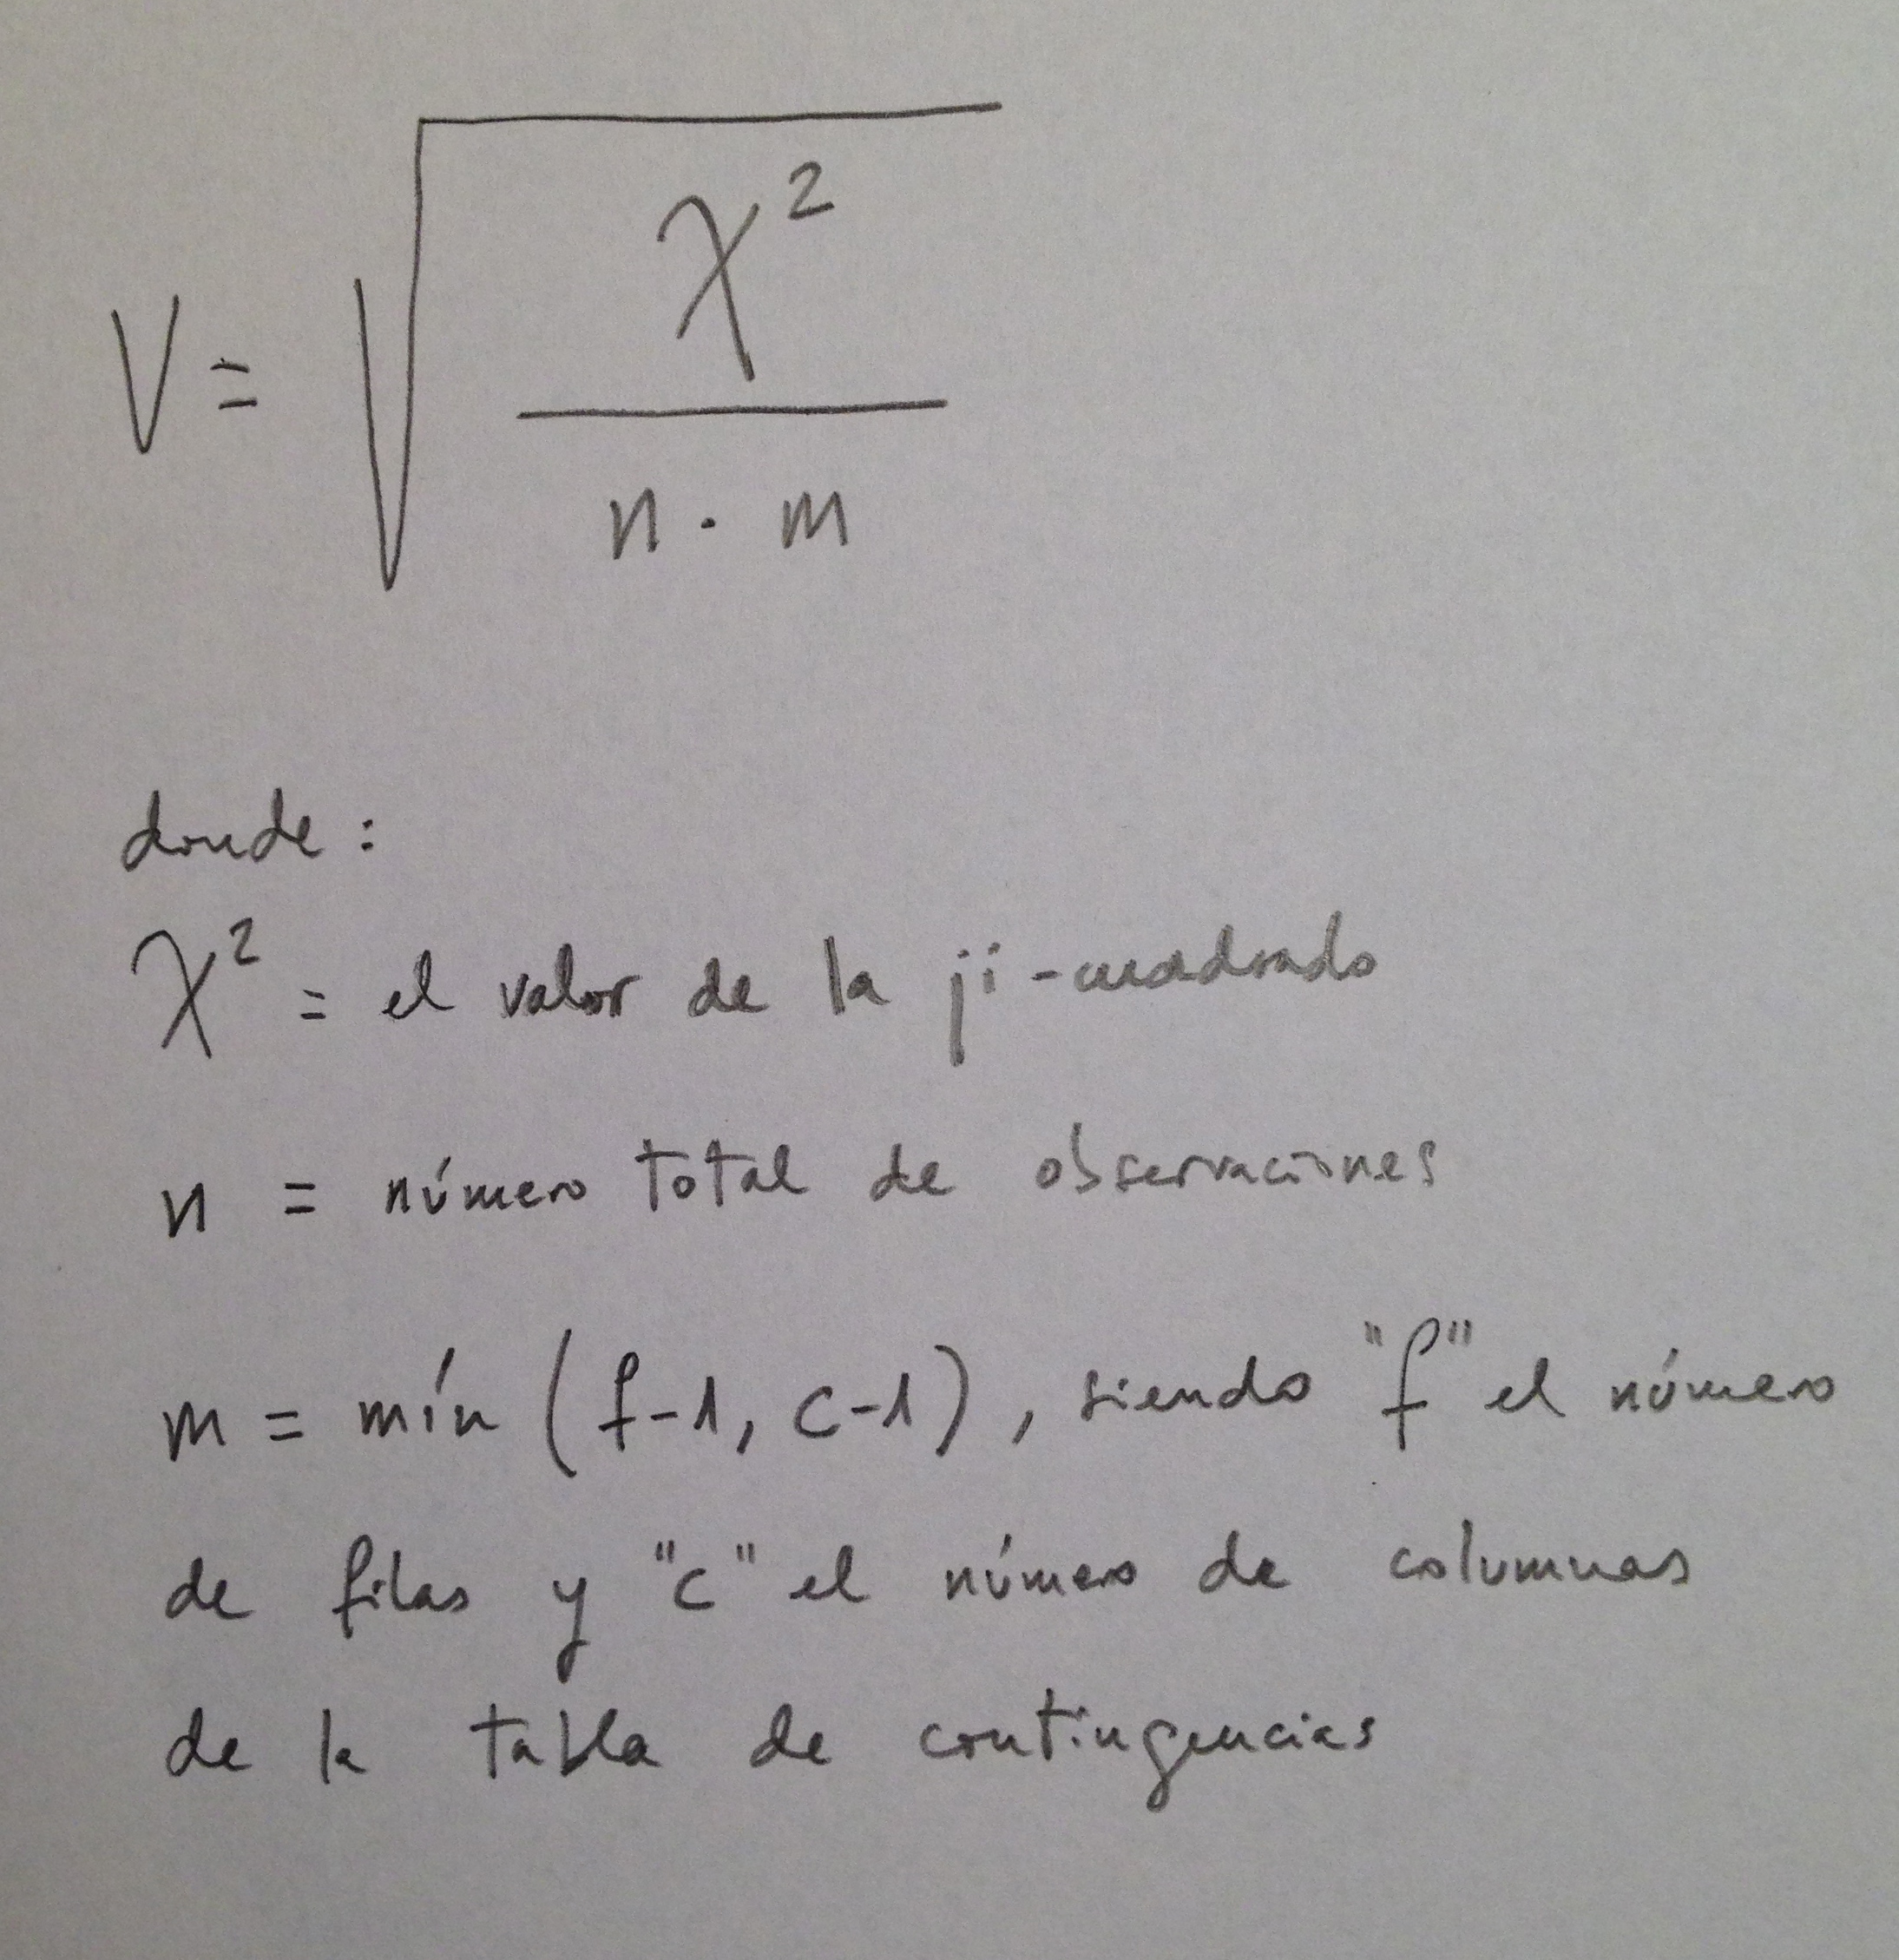 V = √(χ² / (n · m))
donde:
χ² = el valor de la ji-cuadrado
n = número total de observaciones
m = mín (f-1, c-1), siendo "f" el número
de filas y "c" el número de columnas
de la tabla de contingencias